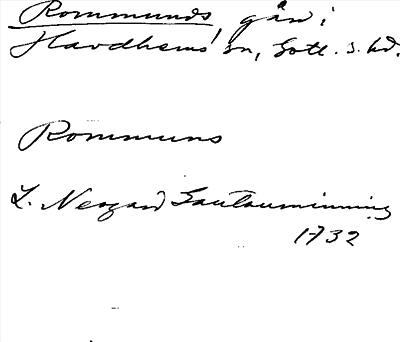 Rommunds, gån i
Havdhems sn, Gotl. s. hd.
Rommuns
L. Neogard Gautauminning
1732